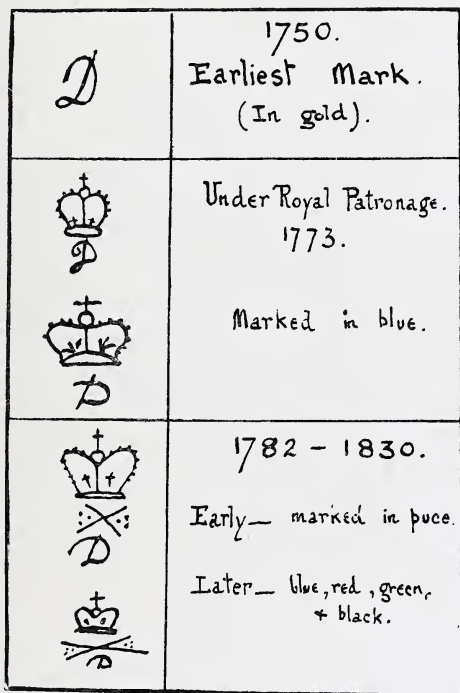 D
1750.
Earliest Mark.
(In gold).
D
D
Under Royal Patronage.
1773.
Marked in blue.
D
D
1782 - 1830.
Early— marked in puce.
Later— blue, red, green,
+ black.